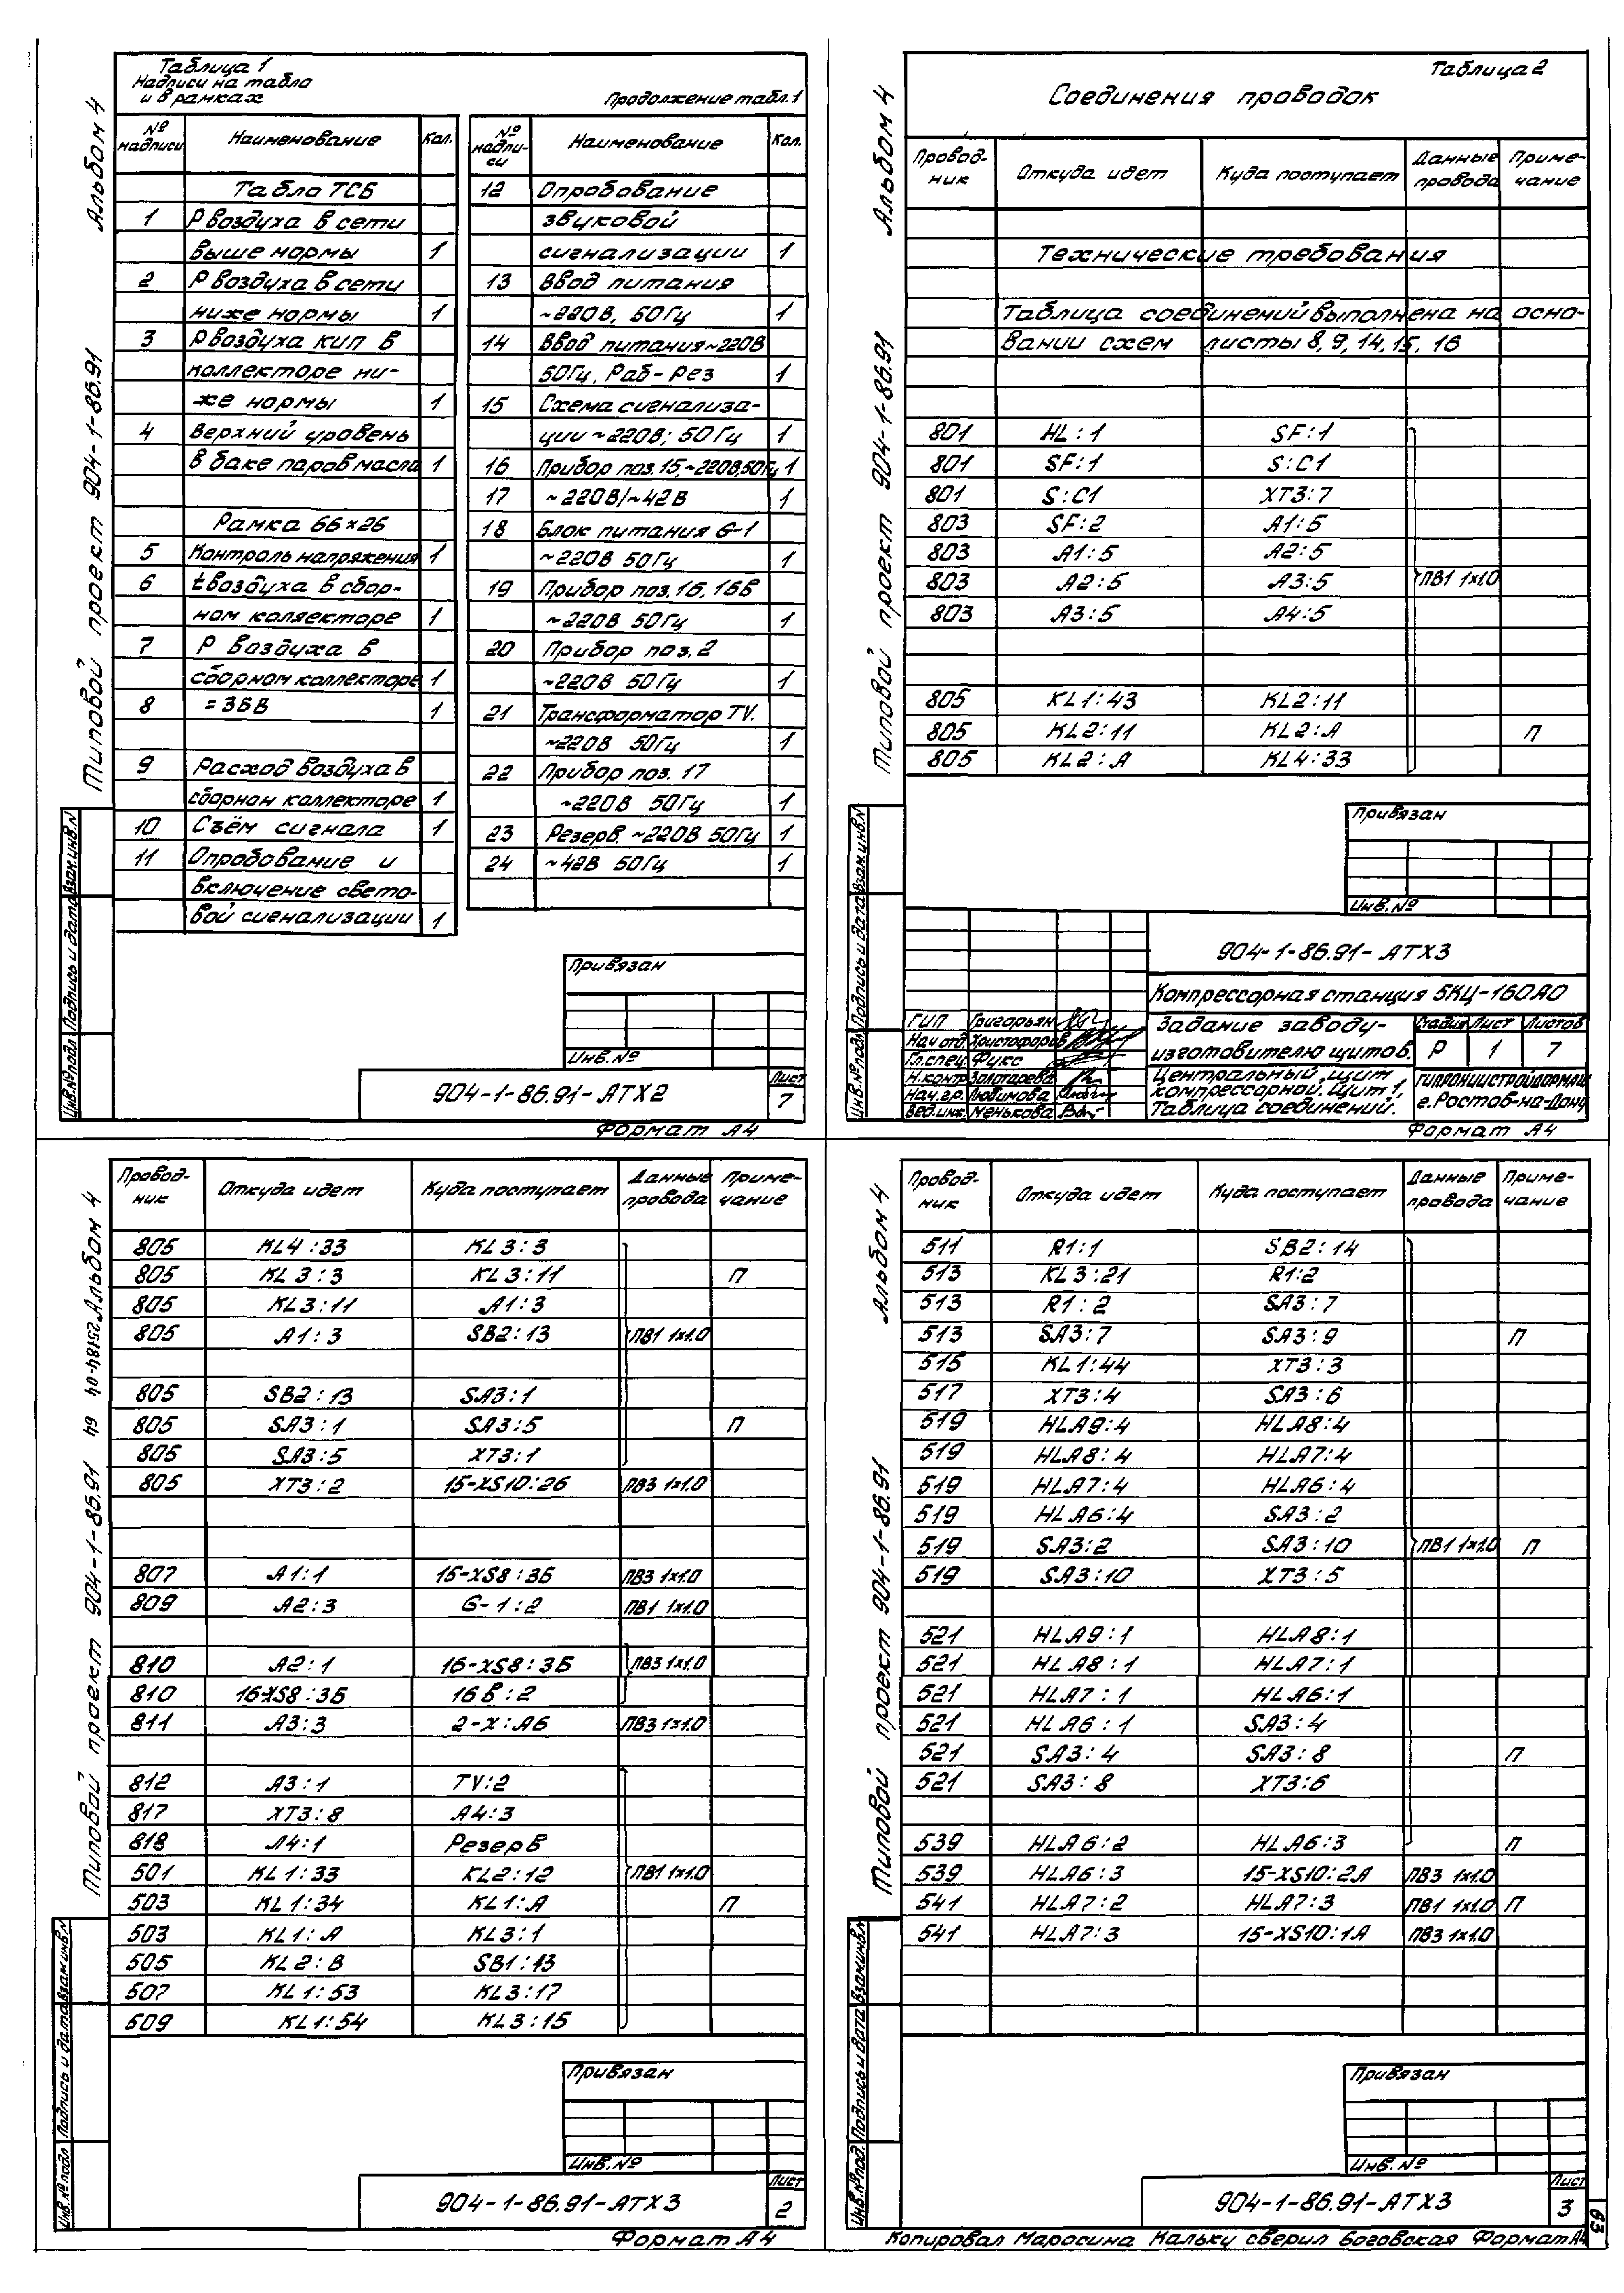 Альбом 4
Типовой проект 904-1-86.91
Таблица 1
Надписи на табло
и в рамках
Продолжение табл. 1
№ надписи Наименование Кол.
Табло ТСБ
1 Р воздуха в сети
выше нормы 1
2 Р воздуха в сети
ниже нормы 1
3 Р воздуха КИП в
коллекторе ни-
же нормы 1
4 Верхний уровень
в баке паров масла 1
Рамка 66×26
5 Контроль напряжения 1
6 t воздуха в сбор-
ном коллекторе 1
7 Р воздуха в
сборном коллекторе 1
8 =36В 1
9 Расход воздуха в
сборном коллекторе 1
10 Съём сигнала 1
11 Опробование и
включение свето-
вой сигнализации 1
№ надпи-си Наименование Кол.
12 Опробование
звуковой
сигнализации 1
13 Ввод питания
~220В, 50Гц 1
14 Ввод питания ~220В
50Гц, Раб-Рез 1
15 Схема сигнализа-
ции ~220В; 50Гц 1
16 Прибор поз. 15, ~220В, 50Гц 1
17 ~220В/~42В 1
18 Блок питания G-1
~220В 50Гц 1
19 Прибор поз. 16, 16В
~220В 50Гц 1
20 Прибор поз. 2
~220В 50Гц 1
21 Трансформатор TV.
~220В 50Гц 1
22 Прибор поз. 17
~220В 50Гц 1
23 Резерв. ~220В 50Гц 1
24 ~42В 50Гц 1
Привязан
Инв. №
904-1-86.91-АТХ2
Лист
7
Инв. № подл. Подпись и дата Взам. инв. №
Формат А4
Альбом 4
Типовой проект 904-1-86.91
Таблица 2
Соединения проводок
Провод-ник Откуда идет Куда поступает Данные провода Приме-чание
Технические требования
Таблица соединений выполнена на осно-
вании схем листы 8, 9, 14, 15, 16
801 HL:1 SF:1
801 SF:1 S:C1
801 S:C1 XT3:7
803 SF:2 A1:5
803 A1:5 A2:5
803 A2:5 A3:5 ПВ1 1×1.0
803 A3:5 A4:5
805 KL1:43 KL2:11
805 KL2:11 KL2:A П
805 KL2:A KL4:33
Привязан
Инв. №
904-1-86.91-АТХ3
Компрессорная станция 5КЦ-160А0
ГИП Григорьян
Нач отд. Христофоров
Гл. спец. Фукс
Н. контр. Золотарева
Нач. гр. Любимова
Вед. инж. Менькова
Задание заводу-
изготовителю щитов.
Стадия Лист Листов
Р 1 7
Центральный щит
компрессорной. Щит 1,
Таблица соединений.
ГИПРОНИИСТРОЙДОРМАШ
г. Ростов-на-Дону
Инв. № подл. Подпись и дата Взам. инв. №
Формат А4
Типовой проект 904-1-86.91 Альбом 4
25184-04
Провод-ник Откуда идет Куда поступает Данные провода Приме-чание
805 KL4:33 KL3:3
805 KL3:3 KL3:11 П
805 KL3:11 A1:3
805 A1:3 SB2:13 ПВ1 1×1.0
805 SB2:13 SA3:1
805 SA3:1 SA3:5 П
805 SA3:5 XT3:1
805 XT3:2 15-XS10:2Б ПВ3 1×1.0
807 A1:1 15-XS8:3Б ПВ3 1×1.0
809 A2:3 G-1:2 ПВ1 1×1.0
810 A2:1 16-XS8:3Б ПВ3 1×1.0
810 16-XS8:3Б 16В:2
811 A3:3 2-X:A6 ПВ3 1×1.0
812 A3:1 TV:2
817 XT3:8 A4:3
818 A4:1 Резерв
501 KL1:33 KL2:12 ПВ1 1×1.0
503 KL1:34 KL1:A П
503 KL1:A KL3:1
505 KL2:B SB1:13
507 KL1:53 KL3:17
509 KL1:54 KL3:15
Привязан
Инв. №
904-1-86.91-АТХ3
Лист
2
Инв. № подл Подпись и дата Взам. инв. №
Формат А4
Альбом 4
Типовой проект 904-1-86.91
Провод-ник Откуда идет Куда поступает Данные провода Приме-чание
511 R1:1 SB2:14
513 KL3:21 R1:2
513 R1:2 SA3:7
513 SA3:7 SA3:9 П
515 KL1:44 XT3:3
517 XT3:4 SA3:6
519 HLA9:4 HLA8:4
519 HLA8:4 HLA7:4
519 HLA7:4 HLA6:4
519 HLA6:4 SA3:2
519 SA3:2 SA3:10 ПВ1 1×1.0 П
519 SA3:10 XT3:5
521 HLA9:1 HLA8:1
521 HLA8:1 HLA7:1
521 HLA7:1 HLA6:1
521 HLA6:1 SA3:4
521 SA3:4 SA3:8 П
521 SA3:8 XT3:6
539 HLA6:2 HLA6:3 П
539 HLA6:3 15-XS10:2A ПВ3 1×1.0
541 HLA7:2 HLA7:3 ПВ1 1×1.0 П
541 HLA7:3 15-XS10:1A ПВ3 1×1.0
Привязан
Инв. №
904-1-86.91-АТХ3
Лист
3
63
Инв. № под. Подпись и дата Взам. инв. №
Копировал Маросина Кальку сверил Боговская Формат А4